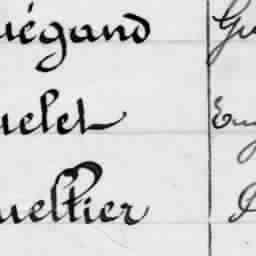 uégand Gu
uelet Eug
uellier